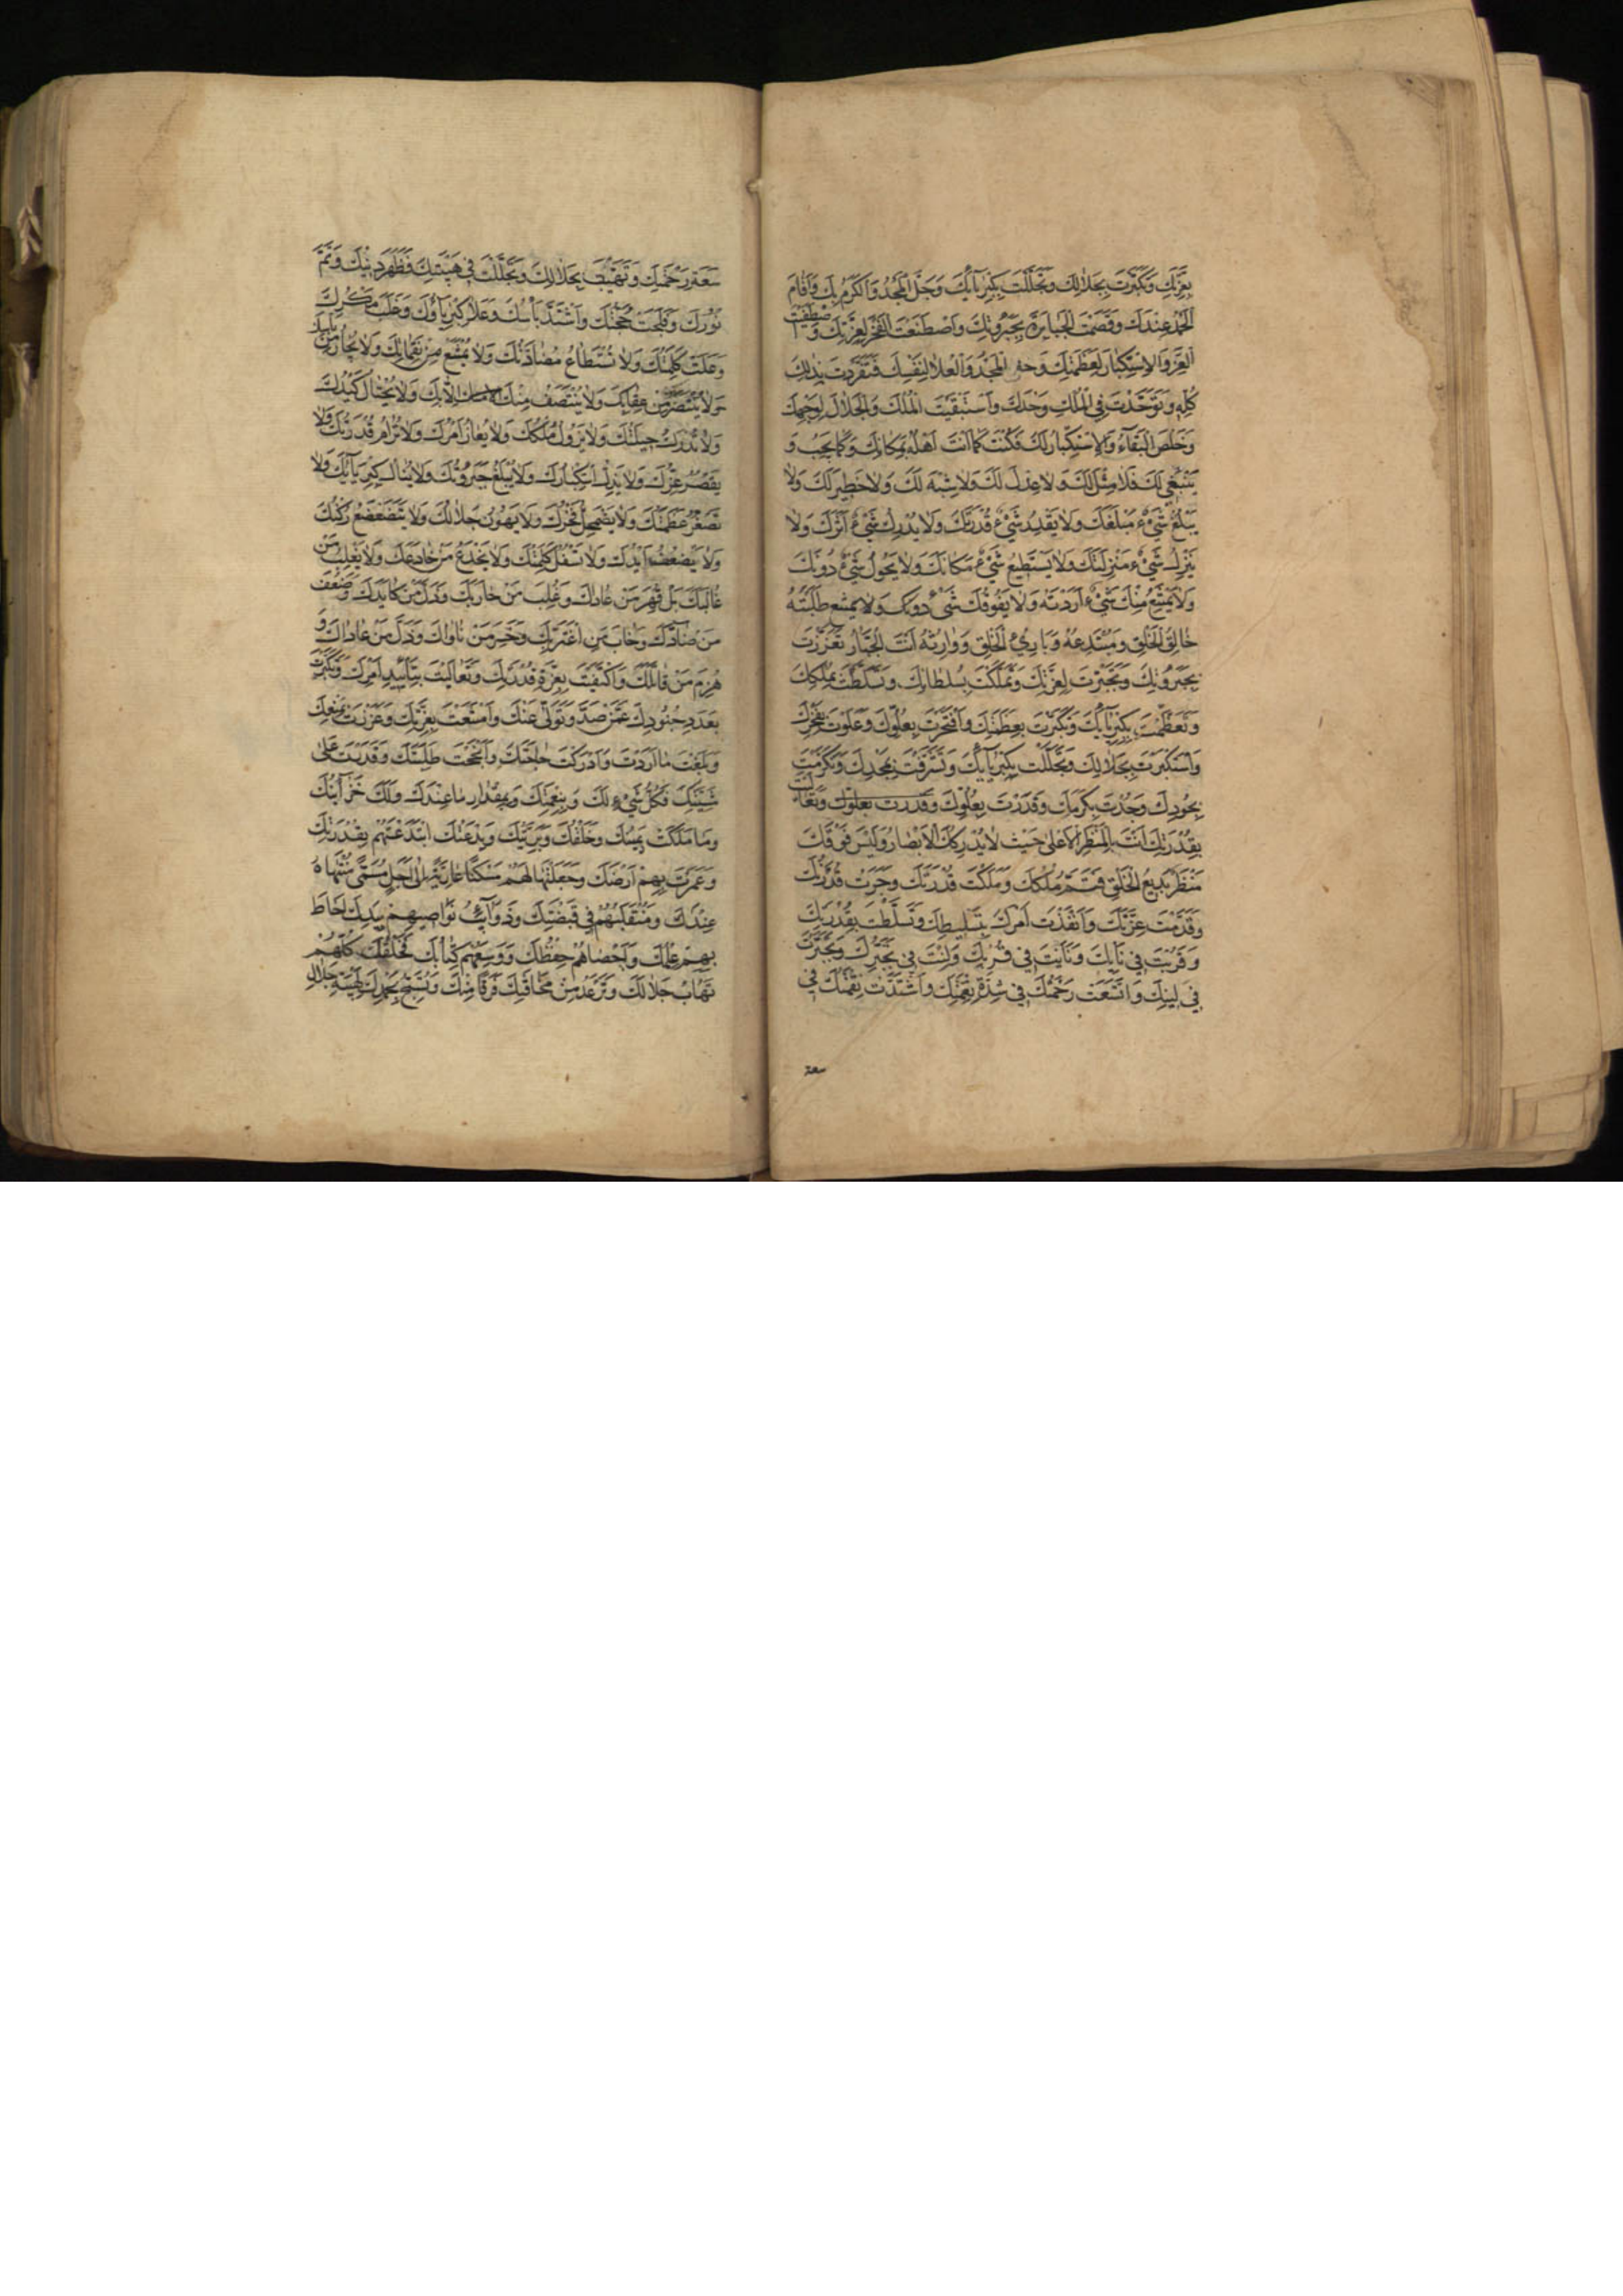 بِعِزَّتِكَ وَتَكَبَّرْتَ بِجَلَالِكَ وَتَجَلَّلْتَ بِكِبْرِيَآئِكَ وَحَلَّ الْمَجْدُ وَالْكَرَمُ بِكَ وَاَقَامَ
الْحَمْدُ عِنْدَكَ وَقَصَمْتَ الْجَبَابِرَةَ بِجَبَرُوتِكَ وَاصْطَنَعْتَ الْفَخْرَ لِعِزَّتِكَ وَاصْطَفَيْتَ
الْعِزَّ وَالْاِسْتِكْبَارَ لِعَظَمَتِكَ الْمَجْدُ وَالْعُلَا لِنَفْسِكَ فَتَفَرَّدْتَ بِذٰلِكَ
كُلِّهِ وَتَوَحَّدْتَ فِي الْمُلْكِ وَحْدَكَ وَاسْتَبْقَيْتَ الْمُلْكَ وَالْجَلَالَ لِوَجْهِكَ
وَخَلَصَ الْبَقَآءُ وَالْاِسْتِكْبَارُ لَكَ فَكُنْتَ كَمَا اَنْتَ اَهْلُهُ بِمَكَانِكَ وَكَمَا يَجِبُ وَ
يَنْبَغِي لَكَ فَلَا مِثْلَ لَكَ وَلَا عِدْلَ لَكَ وَلَا شِبْهَ لَكَ وَلَا خَطِيرَ لَكَ وَلَا
يَبْلُغُ شَيْءٌ مَبْلَغَكَ وَلَا يَقْدِرُ شَيْءٌ قُدْرَتَكَ وَلَا يُدْرِكُ شَيْءٌ اَثَرَكَ وَلَا
يَنْزِلُ شَيْءٌ مَنْزِلَتَكَ وَلَا يَسْتَطِيعُ شَيْءٌ مَكَانَكَ وَلَا يَحُولُ شَيْءٌ دُونَكَ
وَلَا يَمْتَنِعُ مِنْكَ شَيْءٌ اَرَدْتَهُ وَلَا يَفُوتُكَ شَيْءٌ طَلَبْتَهُ
خَالِقُ الْخَلْقِ وَمُبْتَدِعُهُ وَبَارِئُ الْخَلْقِ وَوَارِثُهُ اَنْتَ الْجَبَّارُ تَعَزَّزْتَ
بِجَبَرُوتِكَ وَتَجَبَّرْتَ بِعِزَّتِكَ وَتَمَلَّكْتَ بِسُلْطَانِكَ وَتَسَلَّطْتَ بِمُلْكِكَ
وَتَعَظَّمْتَ بِكِبْرِيَآئِكَ وَتَكَبَّرْتَ بِعَظَمَتِكَ وَافْتَخَرْتَ بِعُلُوِّكَ وَعَلَوْتَ بِفَخْرِكَ
وَاسْتَكْبَرْتَ بِجَلَالِكَ وَتَجَلَّلْتَ بِكِبْرِيَآئِكَ وَتَشَرَّفْتَ بِمَجْدِكَ وَتَكَرَّمْتَ
بِجُودِكَ وَجُدْتَ بِكَرَمِكَ وَقَدَرْتَ بِعُلُوِّكَ وَقَدَرْتَ بِعُلُوِّكَ وَتَعَالَيْتَ
بِقُدْرَتِكَ اَنْتَ بِالْمَنْظَرِ الْاَعْلٰى حَيْثُ لَا يُدْرِكُكَ الْاَبْصَارُ وَلَيْسَ فَوْقَكَ
مَنْظَرٌ بَدِيعُ الْخَلْقِ فَتَمَّ مُلْكُكَ وَمَلَكَتْ قُدْرَتُكَ وَجَرَتْ قُدْرَتُكَ
وَقَدَّمْتَ عِزَّتَكَ وَاَنْفَذْتَ اَمْرَكَ بِتَسْلِيطِكَ وَتَسَلَّطْتَ بِقُدْرَتِكَ
وَقَرُبْتَ فِي نَأْيِكَ وَنَأَيْتَ فِي قُرْبِكَ وَلِنْتَ فِي تَجَبُّرِكَ وَتَجَبَّرْتَ
فِي لِينِكَ وَاتَّسَعَتْ رَحْمَتُكَ فِي شِدَّةِ نِقْمَتِكَ وَاشْتَدَّتْ نِقْمَتُكَ فِي
سعة
سَعَةِ رَحْمَتِكَ وَتَهَيَّبْتَ بِجَلَالِكَ وَتَجَلَّلْتَ فِي هَيْبَتِكَ فَظَهَرَ دِينُكَ وَتَمَّ
نُورُكَ وَفَلَجَتْ حُجَّتُكَ وَاشْتَدَّ بَأْسُكَ وَعَلَا كِبْرِيَآؤُكَ وَغَلَبَ مَكْرُكَ
وَعَلَتْ كَلِمَتُكَ وَلَا تُسْتَطَاعُ مُضَادَّتُكَ وَلَا يُمْتَنَعُ مِنْ نَقِمَاتِكَ وَلَا يُجَارُ مِنْ بَأْسِكَ
وَلَا يُنْتَصَرُ مِنْ عِقَابِكَ وَلَا يُنْتَصَفُ مِنْكَ اِلَّا بِكَ وَلَا يُحْتَالُ كَيْدُكَ
وَلَا تُدْرَكُ حِيلَتُكَ وَلَا يَزُولُ مُلْكُكَ وَلَا يُعَازُّ اَمْرُكَ وَلَا تُرَامُ قُدْرَتُكَ وَلَا
يَقْصُرُ عِزُّكَ وَلَا يَذِلُّ اسْتِكْبَارُكَ وَلَا يُبْلَغُ جَبَرُوتُكَ وَلَا يُنَالُ كِبْرِيَآئُكَ وَلَا
تَصْغُرُ عَظَمَتُكَ وَلَا يَضْمَحِلُّ فَخْرُكَ وَلَا يَهُونُ جَلَالُكَ وَلَا يَتَضَعْضَعُ رُكْنُكَ
وَلَا يَضْعُفُ اَيْدُكَ وَلَا تَسْفُلُ كَلِمَتُكَ وَلَا يَخْدَعُ مَنْ خَادَعَكَ وَلَا يَغْلِبُ مَنْ
غَالَبَكَ بَلْ قُهِرَ مَنْ عَادَّكَ وَغُلِبَ مَنْ حَارَبَكَ وَذَلَّ مَنْ كَايَدَكَ وَضَعُفَ
مَنْ ضَادَّكَ وَخَابَ مَنِ اغْتَرَّ بِكَ وَخَسِرَ مَنْ نَاوَاكَ وَذَلَّ مَنْ عَادَاكَ وَ
هُزِمَ مَنْ قَاتَلَكَ وَاكْتَفَيْتَ بِعِزَّةِ قُدْرَتِكَ وَتَعَالَيْتَ بِتَأْيِيدِ اَمْرِكَ وَتَكَبَّرْتَ
بِعَدَدِ جُنُودِكَ عَمَّنْ صَدَّ وَتَوَلّٰى عَنْكَ وَامْتَنَعْتَ بِعِزَّتِكَ وَعَزَزْتَ بِمَنْعِكَ
وَبَلَغْتَ مَا اَرَدْتَ وَاَدْرَكْتَ حَاجَتَكَ وَاَنْجَحْتَ طَلِبَتَكَ وَقَدَرْتَ عَلٰى
مَشِيَّتِكَ فَكُلُّ شَيْءٍ لَكَ وَبِنِعْمَتِكَ وَبِمِقْدَارٍ مَا عِنْدَكَ وَلَكَ خَزَآئِنُكَ
وَمَا مَلَكَتْ يَمِينُكَ وَخَلْقُكَ وَبَرِيَّتُكَ وَبِدْعَتُكَ ابْتَدَعْتَهُمْ بِقُدْرَتِكَ
وَعَمَرْتَ بِهِمْ اَرْضَكَ وَجَعَلْتَهَا لَهُمْ مَسْكَنًا عَارِيَةً اِلٰى اَجَلٍ مُسَمًّى مُنْتَهَاهُ
عِنْدَكَ وَمُنْقَلَبُهُمْ فِي قَبْضَتِكَ وَذَوَآئِبُ نَوَاصِيهِمْ بِيَدِكَ اَحَاطَ
بِهِمْ عِلْمُكَ وَاَحْصَاهُمْ حِفْظُكَ وَوَسِعَهُمْ كِتَابُكَ فَخَلْقُكَ كُلُّهُمْ
تَهَابُ جَلَالَكَ وَتَرْعَدُ مِنْ مَخَافَتِكَ فَرَقًا مِنْكَ وَتُسَبِّحُ بِحَمْدِكَ لِهَيْبَةِ جَلَالِ